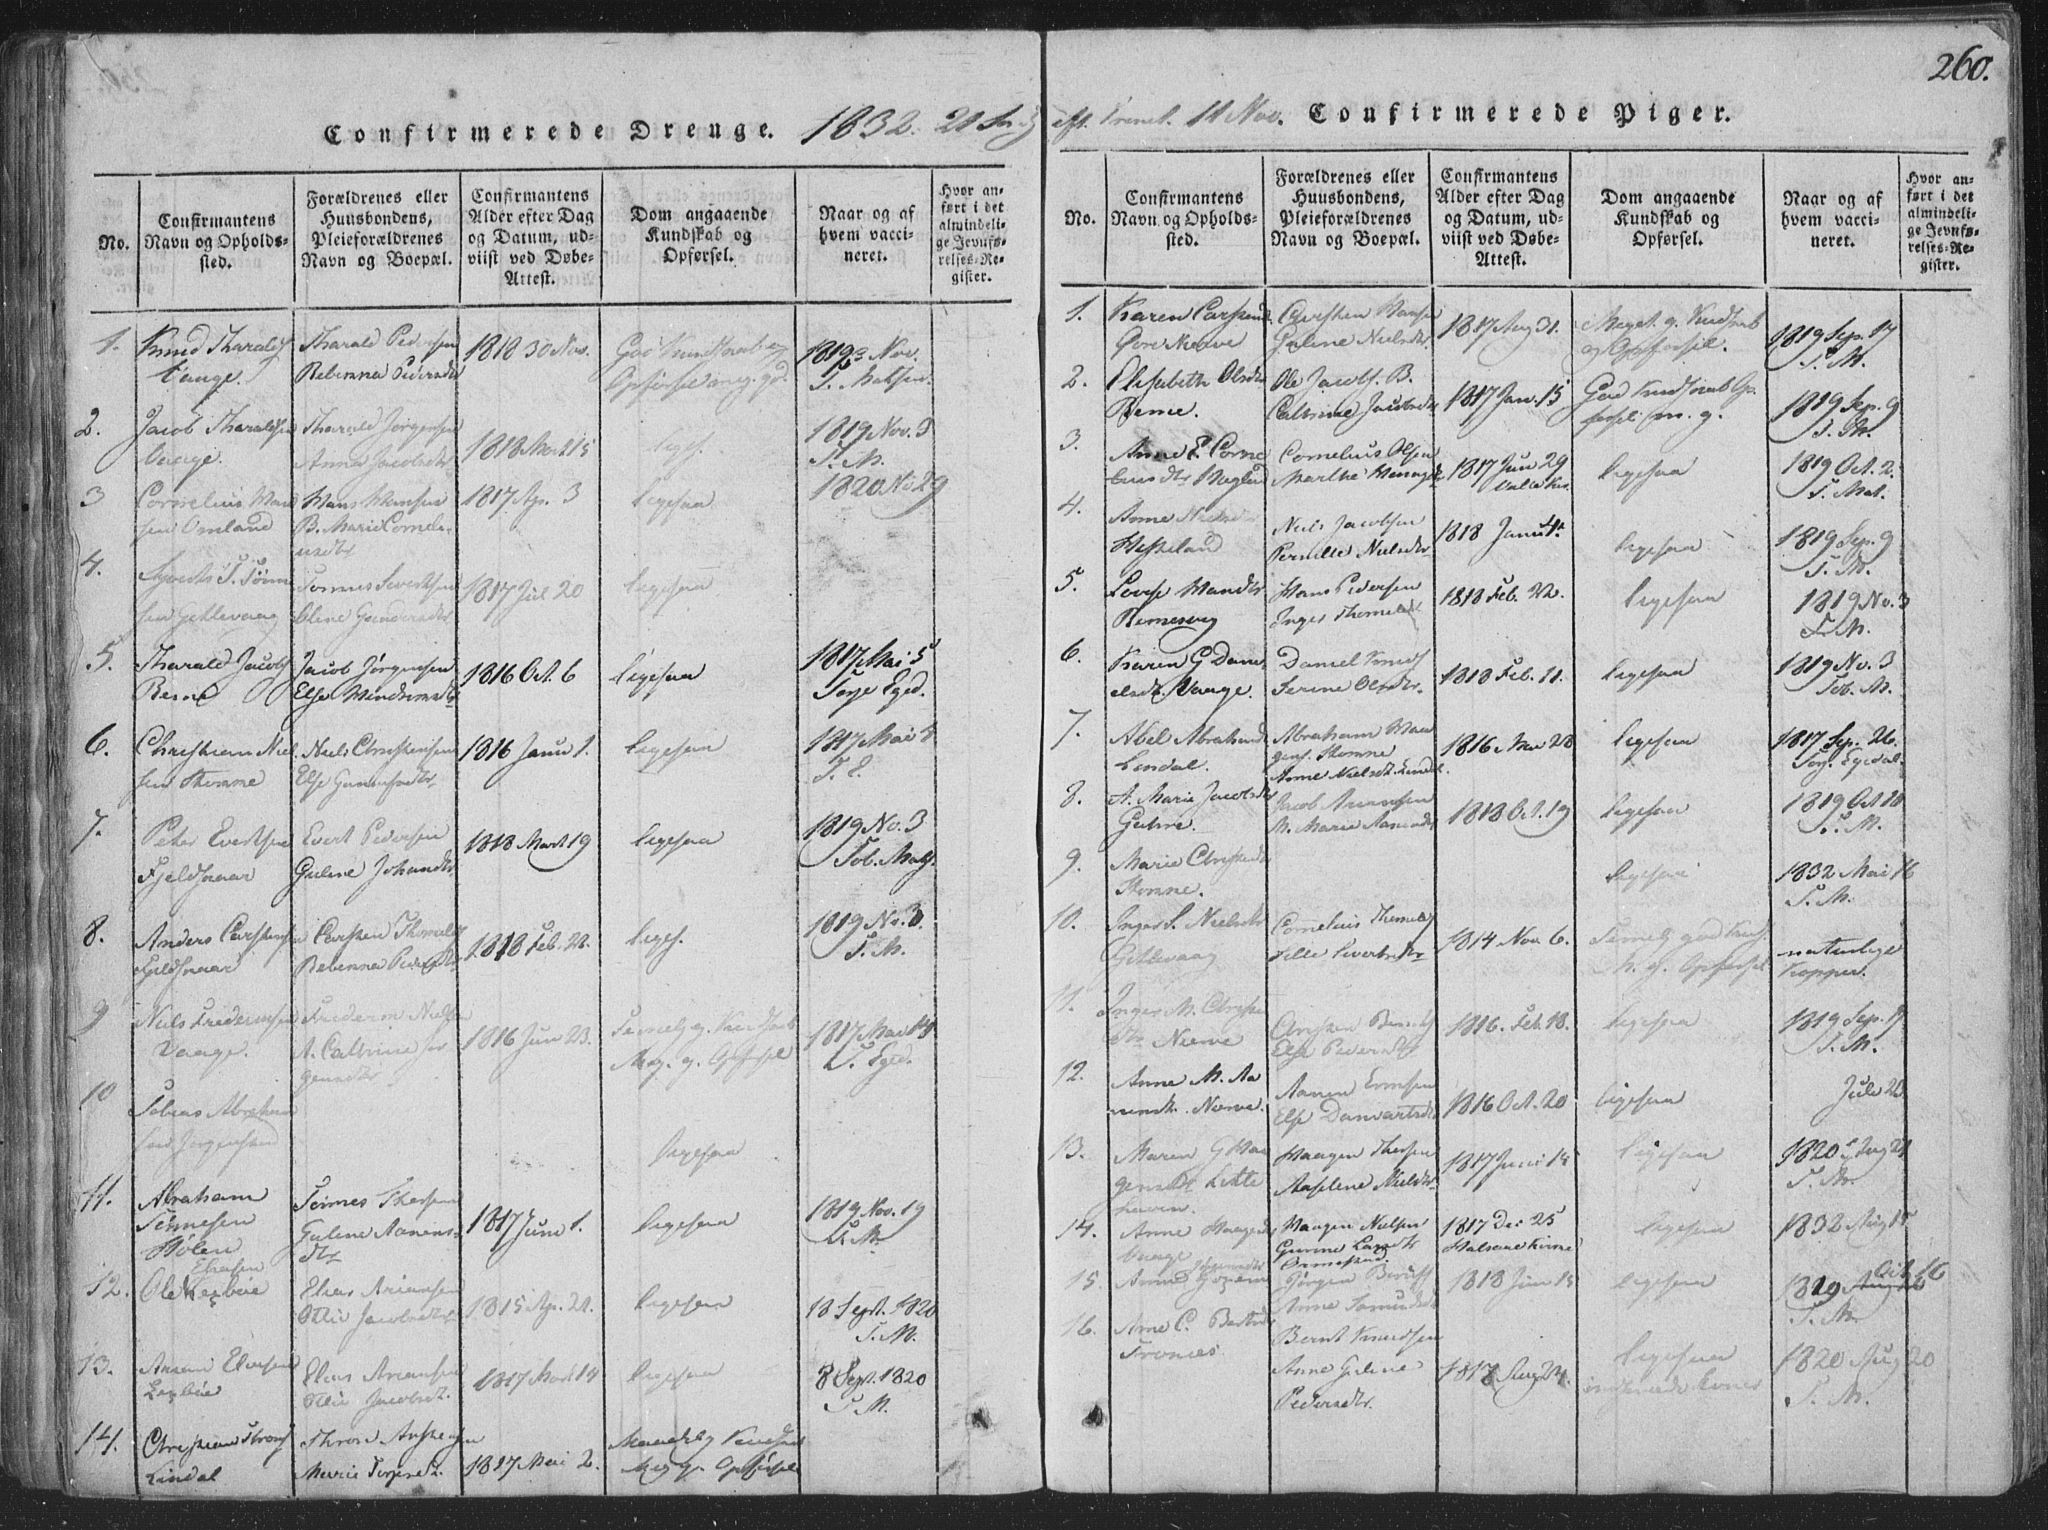 260.
Confirmerede Drenge. 1832. 21 S
eft. Trinet. 11 Nov. Confirmerede Piger.
No.
Confirmantens
Navn og Opholds-
sted.
Forældrenes eller
Huusbondens,
Pleieforældrenes
Navn og Boepæl.
Confirmantens
Alder efter Dag
og Datum, ud-
viist ved Døbe-
Attest.
Dom angaaende
Kundskab og
Opførsel.
Naar og af
hvem vacci-
neret.
Hvor an-
ført i det
almindeli-
ge Jevnfø-
relses-Re-
gister.
1.
Knud Tharalds
Vaage.
Tharald Pedersen
Rebenna Pedersdtr
1818 30 Nov.
God Kundskab og
Opførsel meg. god.
1819 Nov.
T. Matsen.
2.
Jacob Tharaldsen
Vaage.
Tharald Jørgensen
Anna Jacobsdtr
1818 Mart 15
liges.
1819 Nov. 3
T. M.
3
Cornelius Han
sen Omland
Hans Hansen
B. Marie Corneli
usdtr
1817 Apr. 3
ligesaa
1820 No 29
4.
Syverts T. Tønne
sen Gittlevaag
Tønnes Severtsen
Elene Gundersdtr
1817 Jul 20
ligesaa
5.
Tharald Jacobs
Berne
Jacob Jørgensen
Else
1816 Oct. 6
ligesaa
1817 Mai 5
Torje Eged.
6.
Christian Niel
sen Homme
Niels Christensen
Else Gunarsdtr
1816 Janu 1.
ligesaa
1817 Mai 8
T. E.
7.
Peter Evertsen
Fjeldsnaar
Evert Pedersen
Guline Johansdtr
1818 Mart 19
ligesaa
1819 No. 3
Tob. Mats.
8.
Anders Carstensen
Fjeldsnaar
Carsten Thomes
Rebenna Pedersdtr
1818 Feb. 22.
liges.
1819 No. 3
T. M.
9
Niels Frederiksen
Vaage.
Frederik Niels
A. Cathrine Jør
gensdtr
1816 Jun 23.
Temelig g. Kundskab
Meg. g. Opførsel
1817 Mai 14
T. Eged.
10
Tobias Abraham
sen Jørgenstad
ligesaa
11.
Abraham
Tønnesen
Holen
Tønnes Thersen
Guline Aanens
dtr
1817 Juni 1.
ligesaa
1819 Nov. 19
T. M.
12.
Ole Eliesen
Elias Ariansen
Olie Jacobsdtr
1815 Ap. 21.
ligesaa
18 Sept. 1820
T. M.
13.
Elias Ariansen
Olie Jacobsdt.
1817 Mart 14
ligesaa
8 Sept. 1820
T. M.
14.
Christian Thors
Lindal
Marie
1817 Mai 2.
Maadelig Kundskab
Meg g. Opførsel
No.
Confirmantens
Navn og Opholds-
sted.
Forældrenes eller
Huusbondens,
Pleieforældrenes
Navn og Boepæl.
Confirmantens
Alder efter Dag
og Datum, ud-
viist ved Døbe-
Attest.
Dom angaaende
Kundskab og
Opførsel.
Naar og af
hvem vacci-
neret.
Hvor an-
ført i det
almindeli-
ge Jevnfø-
relses-Re-
gister.
1.
Karen Carstens
Øvre Neeve
Carsten Hansen
Guline Nielsdtr
1817 Aug 31.
Meget g. Kundskab
og Opførsel.
1819 Sep. 17
T. M.
2.
Elisabeth Olsdtr
Berne.
Ole Jacobs. B.
Cathrine Jacobsdtr
1817 Jan. 15
God Kundskab Op
førsel m. g.
1819 Sep. 9
T. M.
3.
Anne E. Corne
liusdtr
Cornelius Olsen
Marthe
1817 Jun 29
ligesaa
1819 Oct. 2.
T. Mat.
4.
Anne Niels
Hesseland
Niels Jacobsen
Pernille Nielsdtr
1818 Janu 4.
ligesaa
1819 Sep. 9
T. M.
5.
Lovise Hansdtr
Bernesvog
Hans Pedersen
Inger Thomesd
1818 Feb. 22.
ligesaa
1819 No. 3
T. M.
6.
Karen G Dani
elsdt. Vaage.
Daniel Knuds
Serine Olsdtr.
1818 Feb. 11.
ligesaa
1819 No. 3
Tob. M.
7.
Abel Abrahamd
Lindal.
Abraham Haa
gens. Homme
Anne Nielsdt. Lindal.
1816 Mai 28
ligesaa
1817 Sep. 26.
Torj. Egedal.
8.
A. Marie Jacobsdtr
Guline.
Jacob Arianssen
M. Marie Aanensdtr
1818 Oct. 19
ligesaa
1819 Oct 18
T. M.
9.
Marie Christensdtr
Homme.
ligesaa
1832 Mai 16
T. M.
10.
Inger S. Nielsdtr
Gittlevaag
Cornelius Thomes
Sille Sivertsdtr
1814 Nov 6.
Temelig god Kunds.
M. g. Opførsel
naturlige
Kopper.
11.
Inger M. Christens
dtr Neeve
Christen Berntss
Else Pedersdtr
1816. Feb. 18.
ligesaa
1819 Sep. 17
T. M.
12.
Anne M. Aa
nensdt. Neeve.
Aanen
Else Danvartsdt.
1816 Oct. 20
ligesaa
Julii 23.
13.
Maren G Haa
gensdtr Lille
havn.
Haagen Thersen
Aaselene Nielsdtr
1817 Juni 15
ligesaa
1820 Aug 21
T. M.
14.
Anne Haagensd
Vaage
Haagen Nielsen
Gunne
1817 De 25
ligesaa
1832 Aug 15
15.
Anne
Jørgen
Anne
1818 Jun 15
ligesaa
1819 Oct 16
T. M.
16.
Anne C. Berntsdtr
Tronnes
Bernt Knudsen
Anne Guline
Pedersdtr.
1817 Aug 24.
ligesaa
1820 Aug 20
T. M.